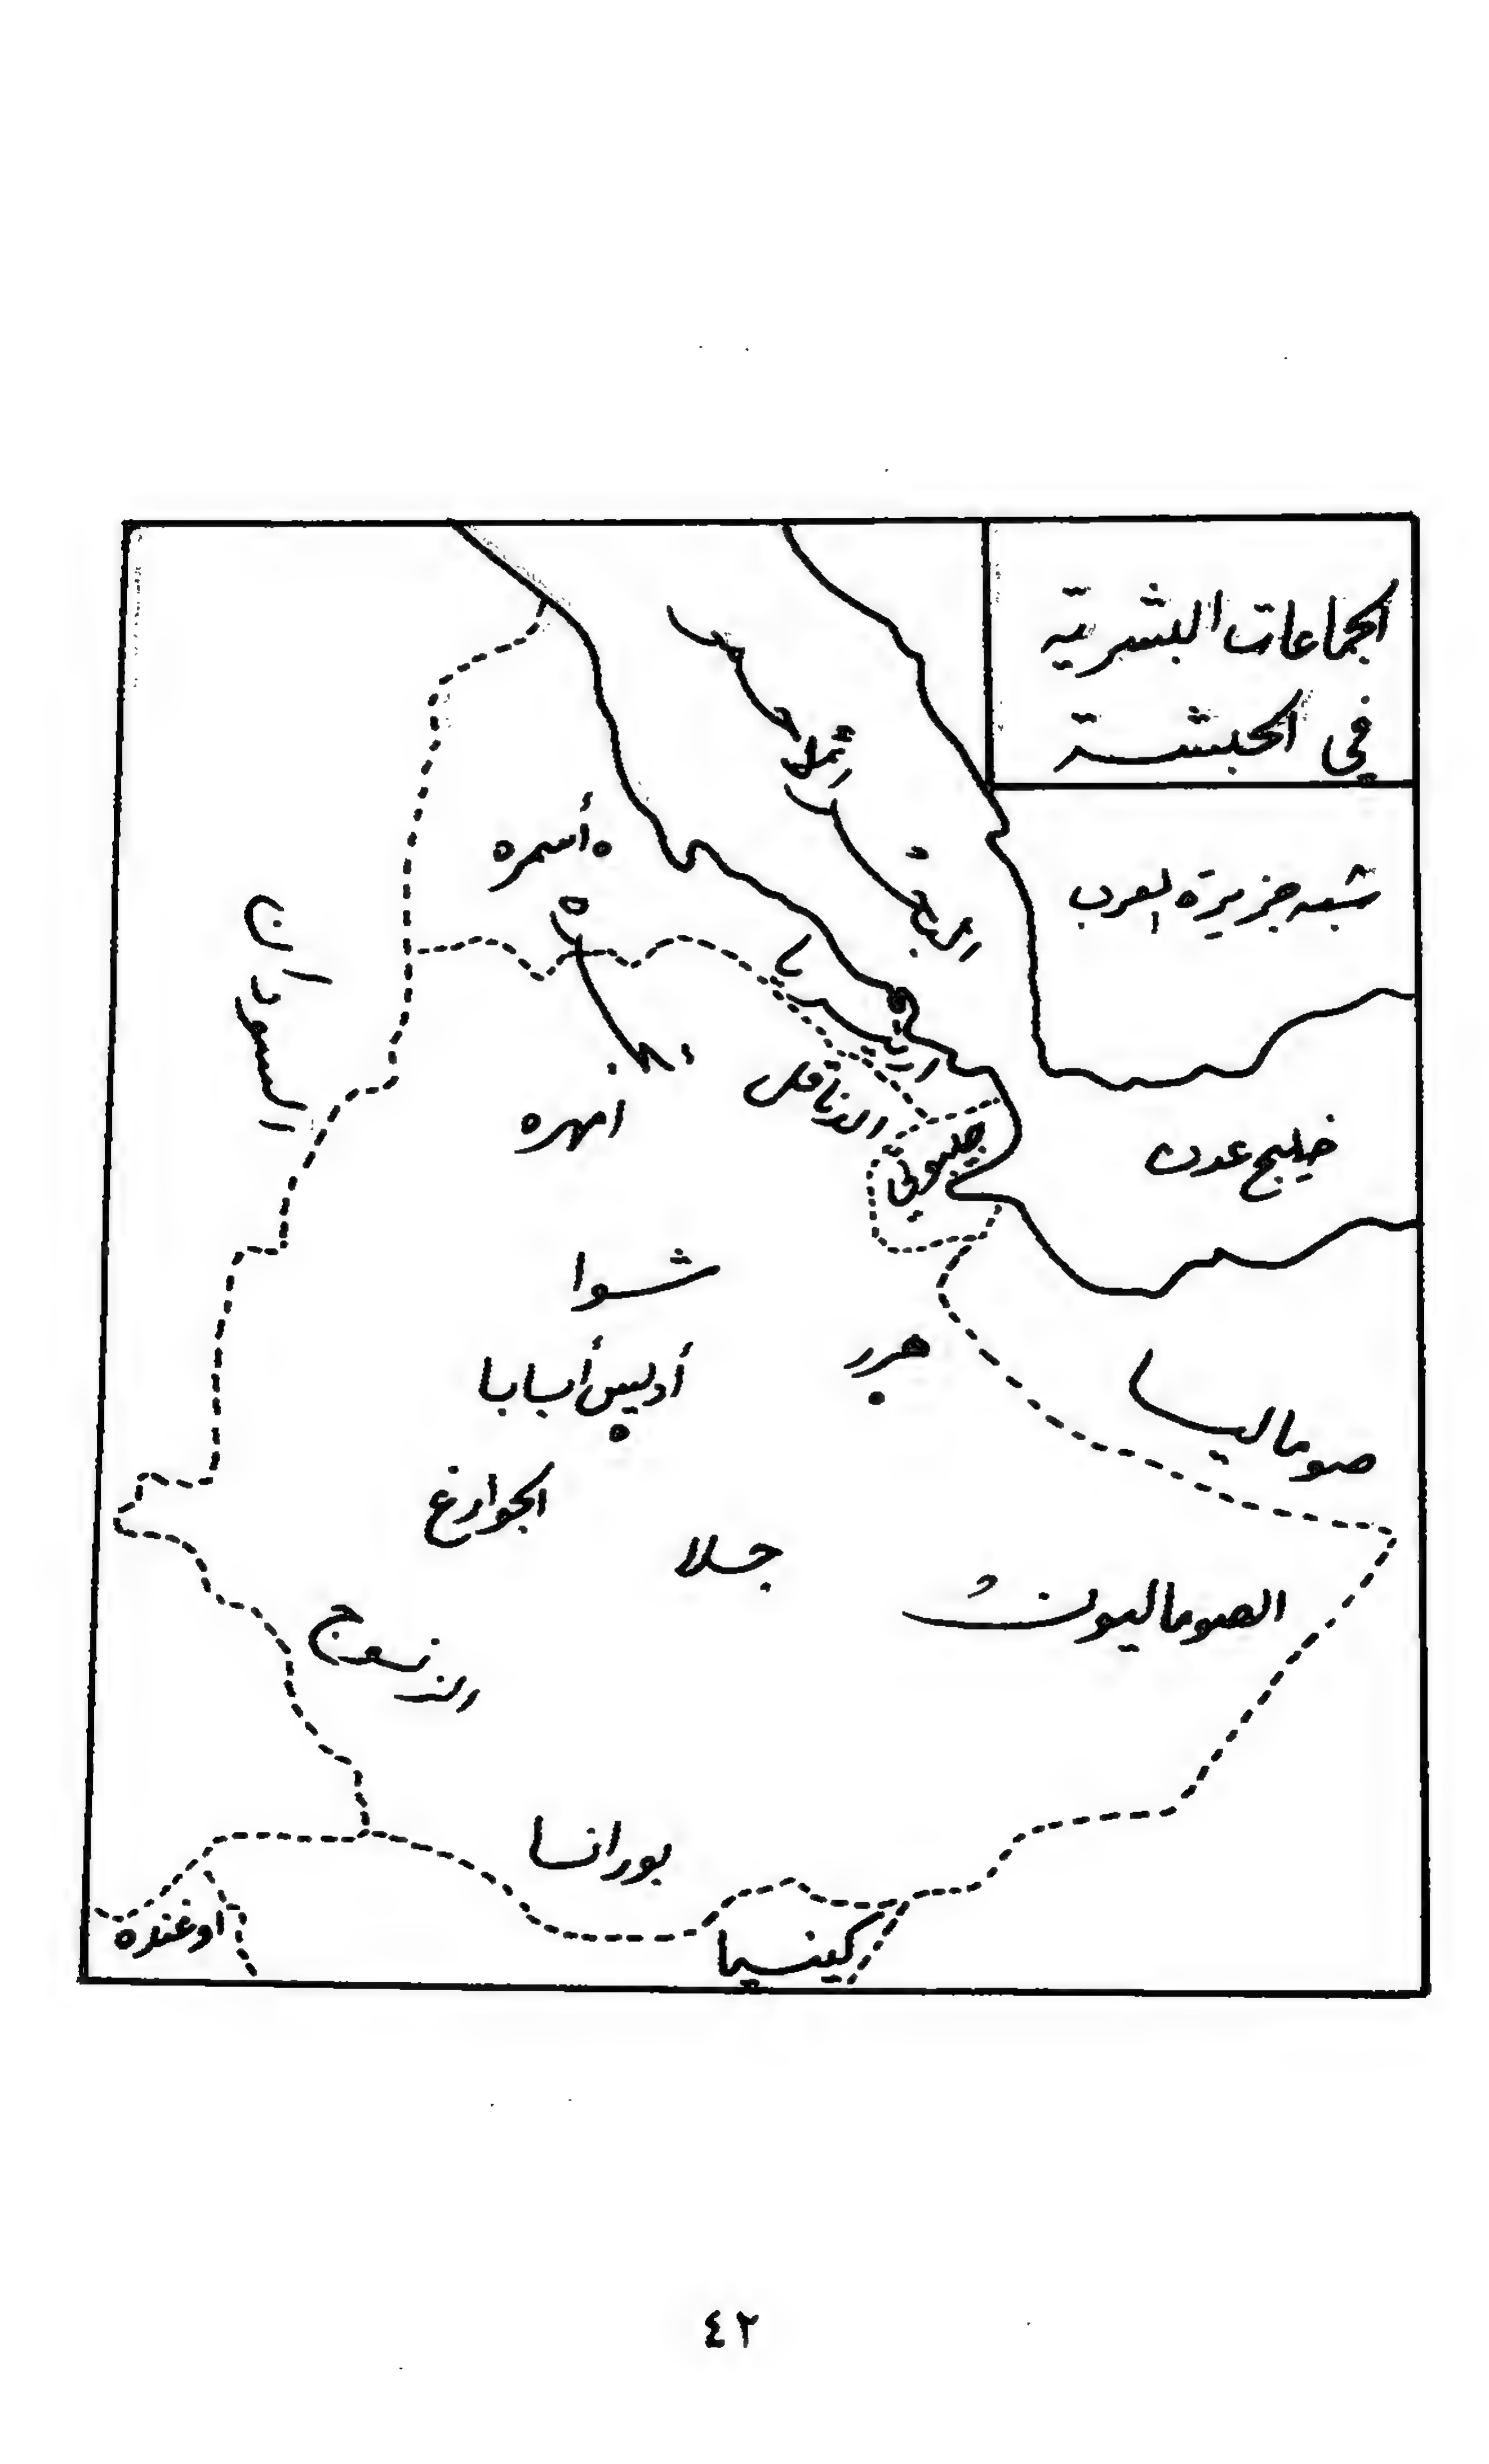 الجماعات البشرية
في الحبشة
شبه جزيرة العرب
البحر الأحمر
أسمره
السودان
ارتيريا
الدناقل
امهره
جيبوتي
خليج عدن
شوا
أديس أبابا
هرر
صوماليا
الجوارغ
جلا
الصوماليون
الزنوج
بورانا
اوغنده
كينيا
٤٢